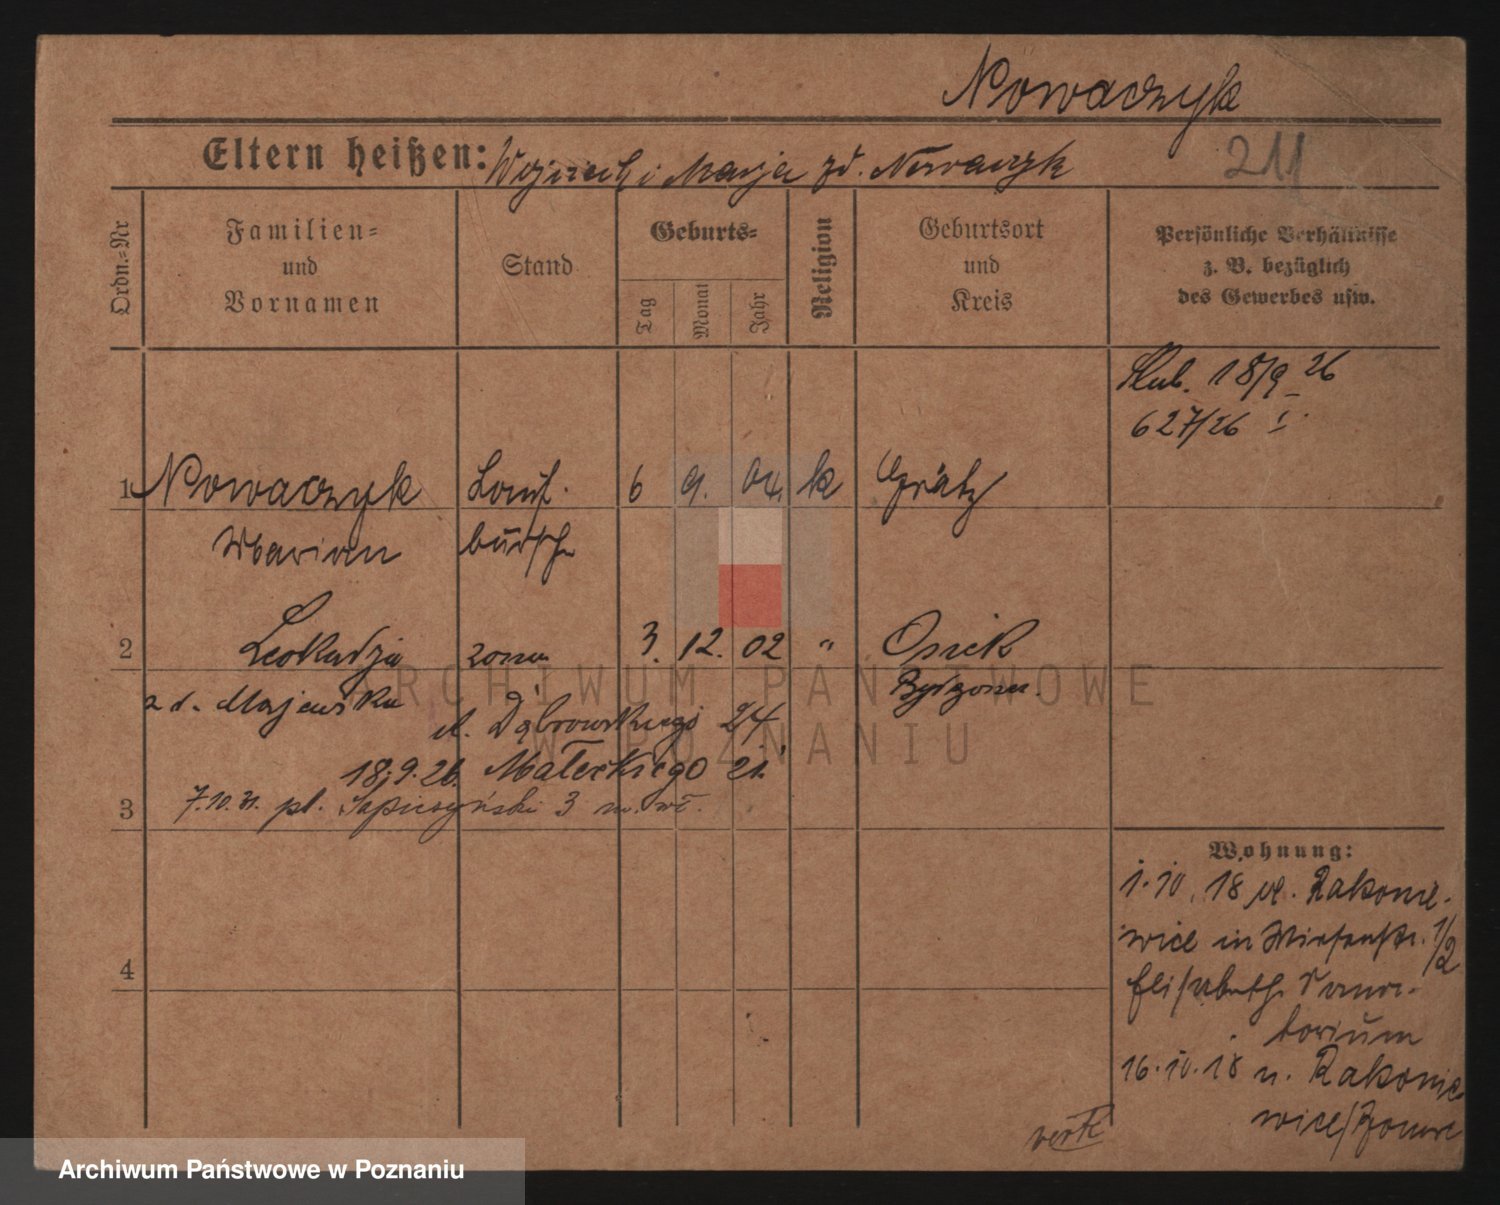 Nowaczyk
211
Eltern heißen: Wojciech i Marja zd. Nowaczyk
Ordn.-Nr
Familien- und Vornamen
Stand
Geburts-
Tag
Monat
Jahr
Religion
Geburtsort und Kreis
Persönliche Verhältnisse z. B. bezüglich des Gewerbes usw.
Slub. 18/9 26
627/26 I.
1 Nowaczyk Lauf- 6 9. 04. k Grätz
Marian bursche
2 Leokadja żona 3. 12. 02 " Osiek
zd. Majewska Bydgoszcz.
ul. Dąbrowskiego 24
18.9.26. Małeckiego 21.
7.10.31. pl. Sapieżyński 3 m.
3
4
Wohnung:
1.10.18 v. Rakonie-
wice in 1/2
Elisabeth Sana-
torium
16.10.18 n. Rakonie
wice/
verk
ARCHIWUM PAŃSTWOWE
W POZNANIU
Archiwum Państwowe w Poznaniu